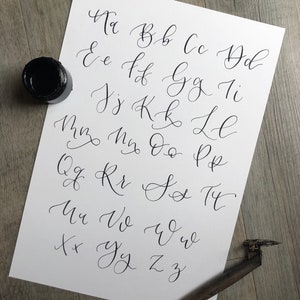 Aa Bb Cc Dd
Ee Ff Gg Ii
Jj Kk Ll
Mm Nn Oo Pp
Qq Rr Ss Tt
Uu Vv Ww
Xx Yy Zz